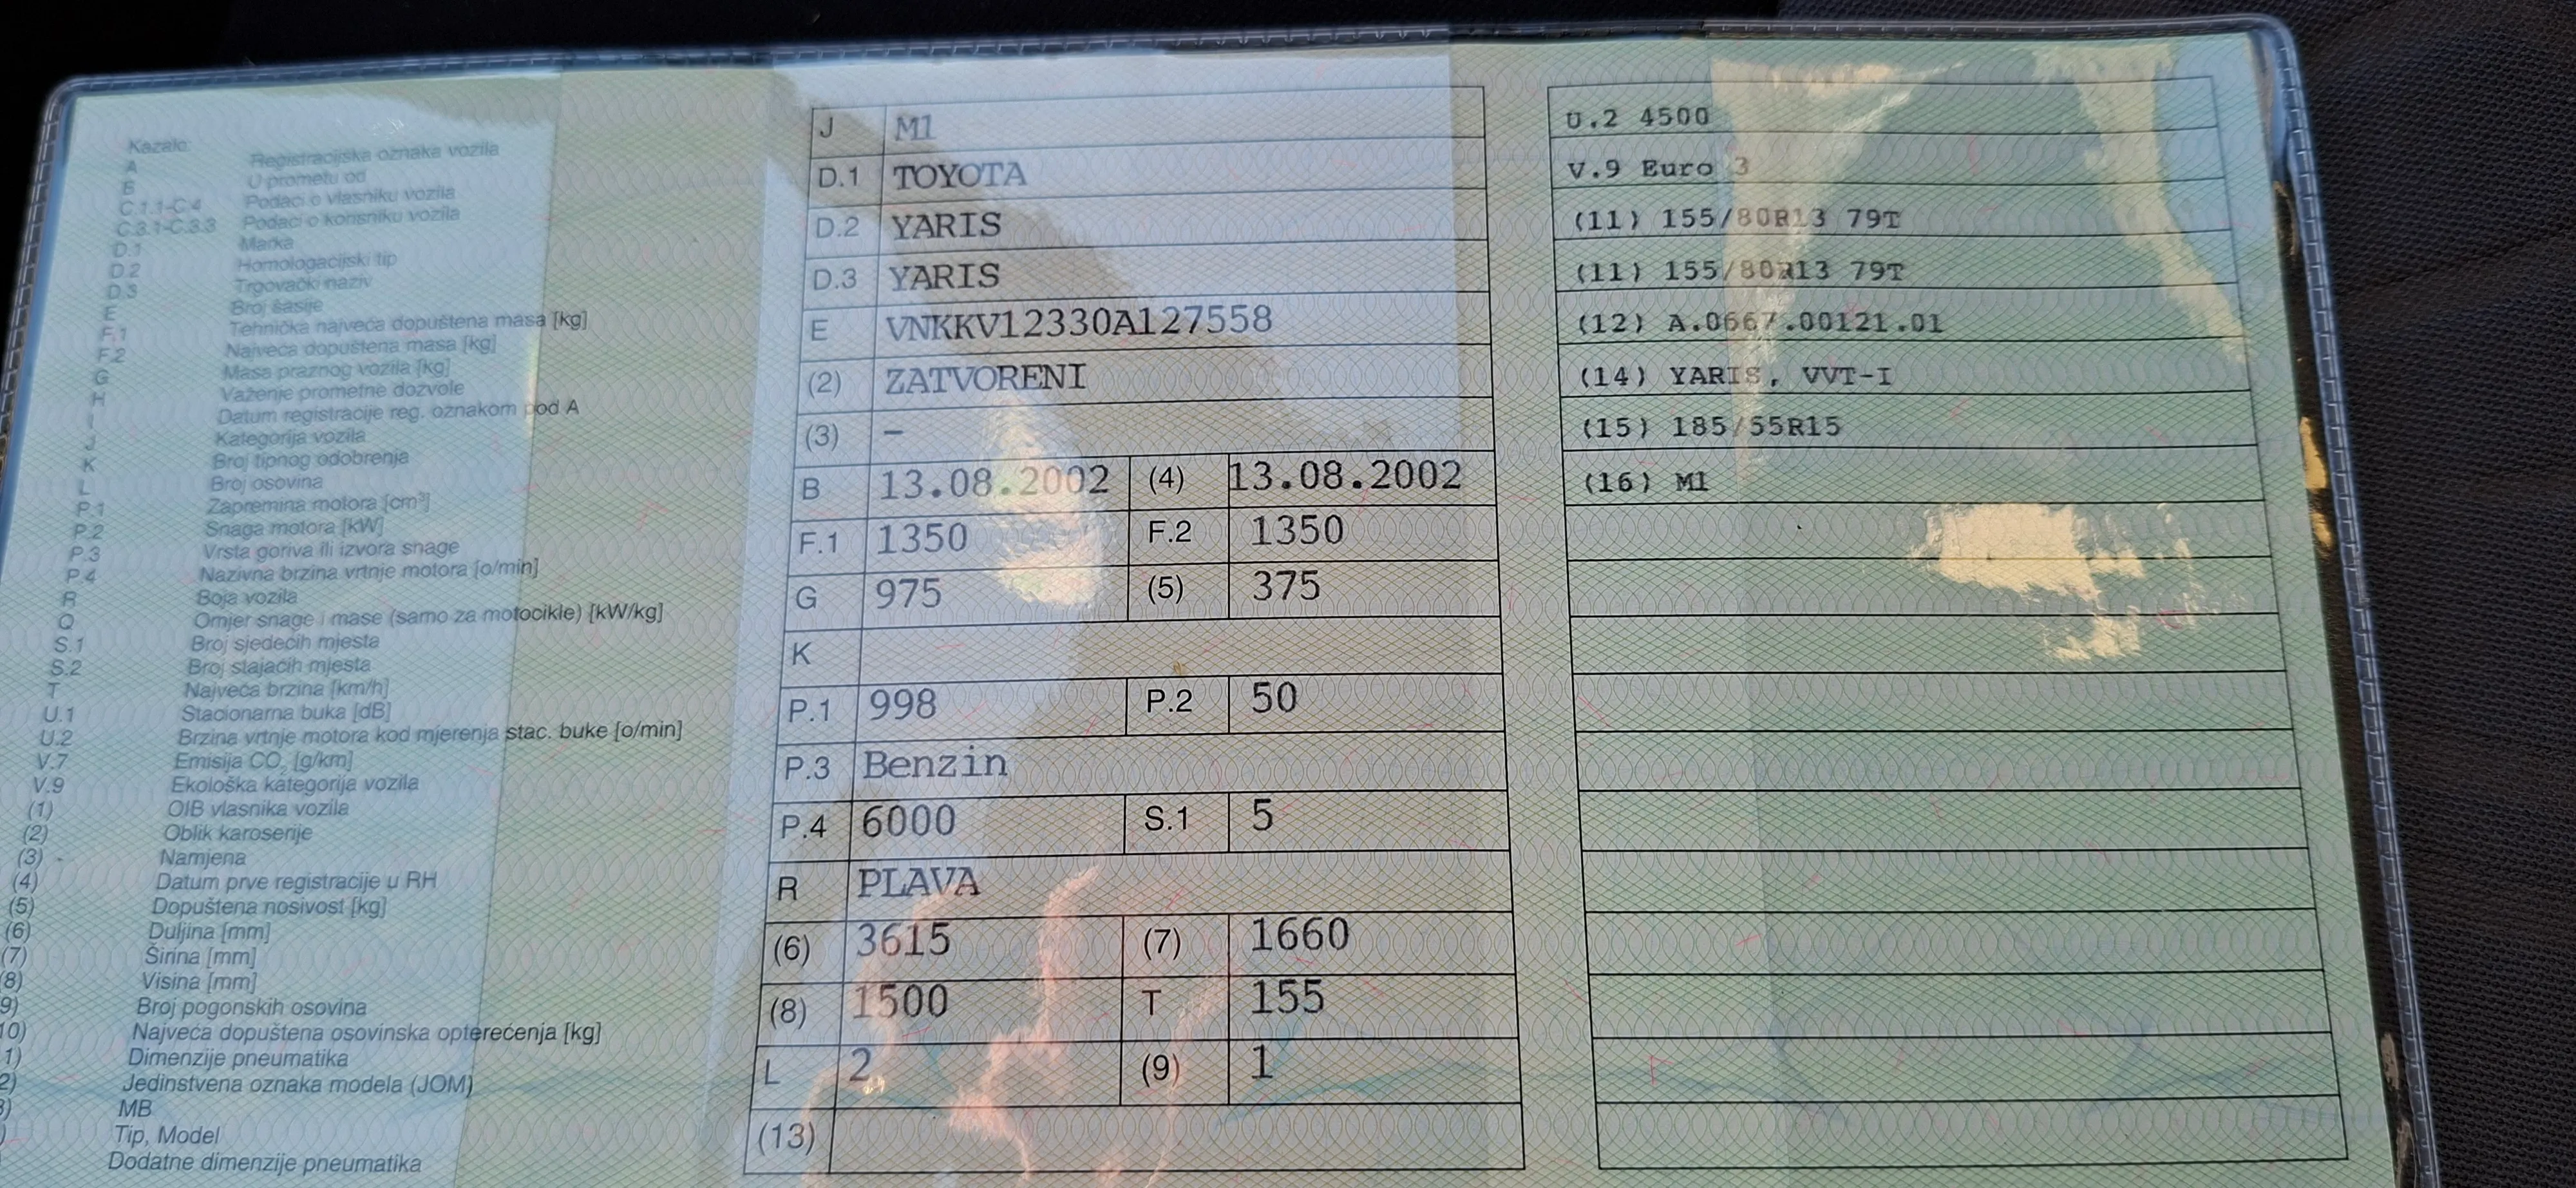 Kazalo:
A Registracijska oznaka vozila
B U prometu od
C.1.1-C.4 Podaci o vlasniku vozila
C.3.1-C.3.3 Podaci o korisniku vozila
D.1 Marka
D.2 Homologacijski tip
D.3 Trgovački naziv
E Broj šasije
F.1 Tehnička najveća dopuštena masa [kg]
F.2 Najveća dopuštena masa [kg]
G Masa praznog vozila [kg]
H Važenje prometne dozvole
I Datum registracije reg. oznakom pod A
J Kategorija vozila
K Broj tipnog odobrenja
L Broj osovina
P.1 Zapremina motora [cm³]
P.2 Snaga motora [kW]
P.3 Vrsta goriva ili izvora snage
P.4 Nazivna brzina vrtnje motora [o/min]
R Boja vozila
Q Omjer snage i mase (samo za motocikle) [kW/kg]
S.1 Broj sjedećih mjesta
S.2 Broj stajaćih mjesta
T Najveća brzina [km/h]
U.1 Stacionarna buka [dB]
U.2 Brzina vrtnje motora kod mjerenja stac. buke [o/min]
V.7 Emisija CO₂ [g/km]
V.9 Ekološka kategorija vozila
(1) OIB vlasnika vozila
(2) Oblik karoserije
(3) - Namjena
(4) Datum prve registracije u RH
(5) Dopuštena nosivost [kg]
(6) Duljina [mm]
(7) Širina [mm]
8) Visina [mm]
9) Broj pogonskih osovina
10) Najveća dopuštena osovinska opterećenja [kg]
1) Dimenzije pneumatika
2) Jedinstvena oznaka modela (JOM)
) MB
) Tip, Model
Dodatne dimenzije pneumatika
J M1
D.1 TOYOTA
D.2 YARIS
D.3 YARIS
E VNKKV12330A127558
(2) ZATVORENI
(3) –
B 13.08.2002 (4) 13.08.2002
F.1 1350 F.2 1350
G 975 (5) 375
K
P.1 998 P.2 50
P.3 Benzin
P.4 6000 S.1 5
R PLAVA
(6) 3615 (7) 1660
(8) 1500 T 155
L 2 (9) 1
(13)
U.2 4500
V.9 Euro 3
(11) 155/80R13 79T
(11) 155/80R13 79T
(12) A.0667.00121.01
(14) YARIS, VVT-I
(15) 185/55R15
(16) M1